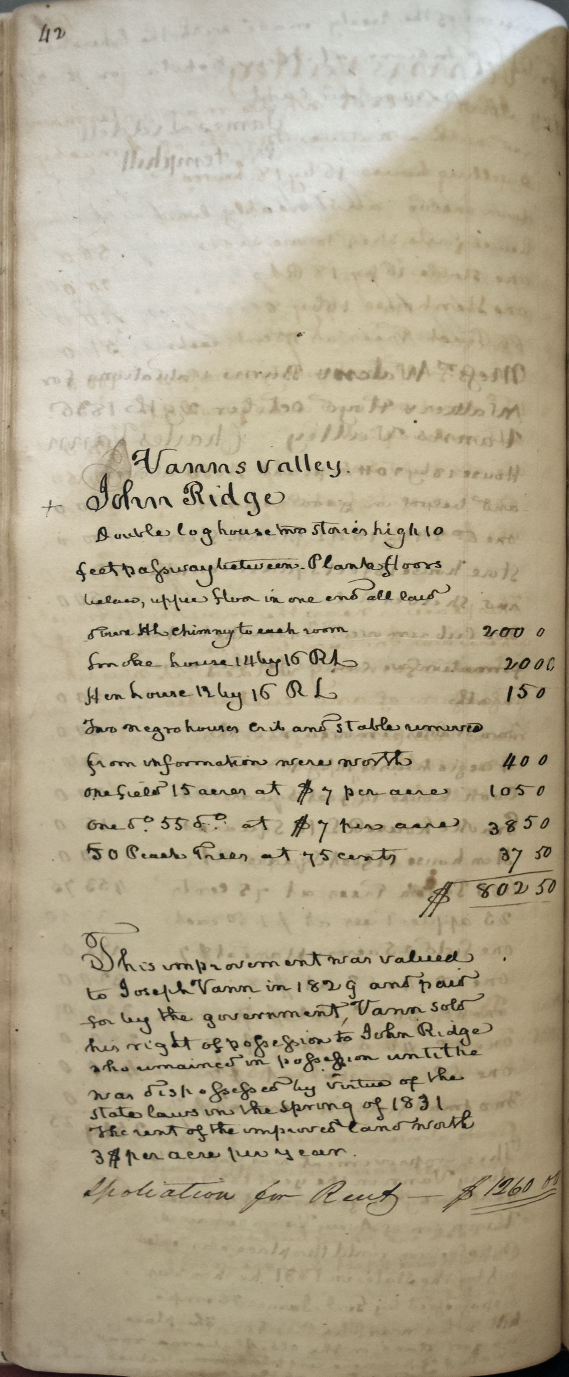 42
Vanns valley.
+ John Ridge
Double log house two stories high 10
feet passway between. Plank floors
below, upper floor in one end all laid
stone &
chimny to each room 200 0
Smoke house 14 by 16 RL 20 00
Hen house 12 by 16 RL 15 0
Two negro houses Crib and stable removed
from information were worth 40 0
one field 15 acres at $7 per acre 105 0
one do. 55 do. at $7 per acre 385 0
50 Peach Trees at 75 cents 37 50
$ 802 50
This improvement was valued
to Joseph Vann in 1829 and paid
for by the government, Vann sold
his right of possession to John Ridge
who remained in possession until he
was dispossessed by virtue of the
state laws in the spring of 1831
The rent of the improved land worth
3$ per acre per year.
Spoliation for Rent — $ 1260 00